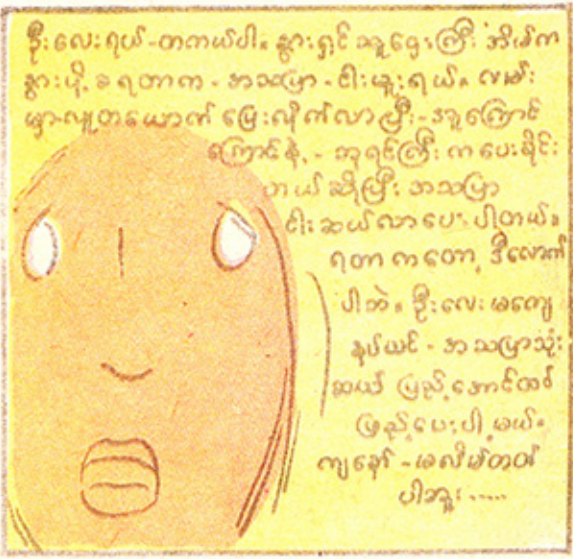 ဦးလေးရယ် - တကယ်ပါ။ နွားရှင် သူဌေးကြီး အိမ်က
နွားပို့ခ ရတာက - အသပြာ - ငါးမူးရယ်။ လမ်း
မှာ-လူတယောက် ပြေးလိုက်လာပြီး - သူကြောင်
ကြောင်နဲ့ - ဘုရင်ကြီး ကပေးခိုင်း
တယ်ဆိုပြီး အသပြာ
ငါးဆယ်လာပေးပါတယ်။
ရတာ ကတော့ ဒီလောက်
ပါဘဲ။ ဦးလေး မကျေ
နပ်ယင် - အသပြာသုံး
ဆယ် ပြည့်အောင်ထပ်
ဖြည့်ပေးပါ့မယ်။
ကျနော် - မလိမ်တတ်
ပါဘူး .....